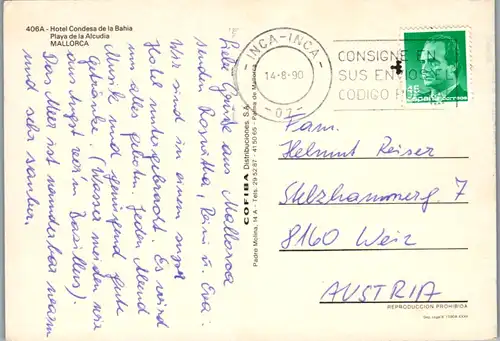 406A - Hotel Condesa de la Bahia
Playa de la Alcudia
MALLORCA
Liebe Grüße aus Mallorca
senden Roswitha, Reni u. Eva.
Wir sind in einem super
Hotel untergebracht. Es wird
uns alles geboten. Jeden Abend
Musik und genügend gute
Getränke. (Wasser meiden wir
aus Angst vor'm Bazillus).
Das Meer ist wunderbar warm
und sehr sauber.
COFIBA Distribuciones, S.A.
Padre Molina, 14 A - Tels. 29 52 87 - 41 50 65 - Palma de Mallorca
- INCA - INCA -
14-8-90
- 07 -
CONSIGNE EN
SUS ENVIOS EL
CODIGO
45
España
Fam.
Helmut Reiser
Stelzhamerg. 7
8160 Weiz
AUSTRIA
REPRODUCCION PROHIBIDA